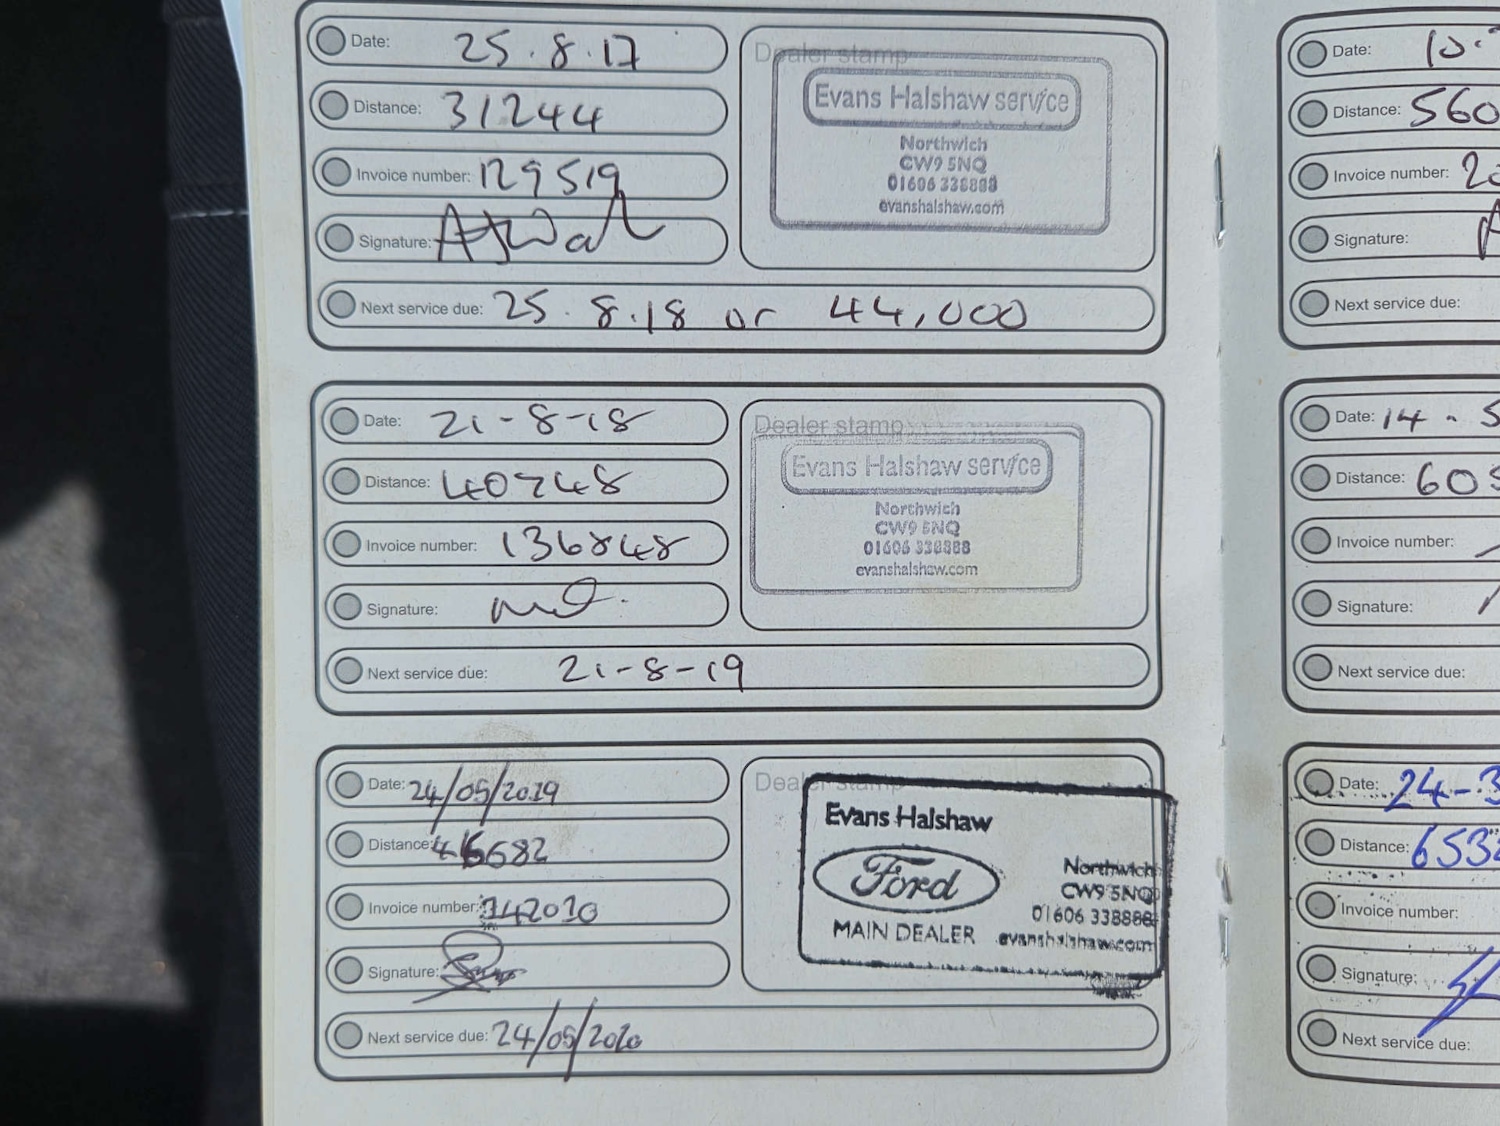 Date: 25.8.17
Distance: 31244
Invoice number: 129519
Signature:
Next service due: 25.8.18 or 44,000
Dealer stamp
Evans Halshaw service
Northwich
CW9 5NQ
01606 338888
evanshalshaw.com
Date: 21-8-18
Distance: 40748
Invoice number: 136848
Signature:
Next service due: 21-8-19
Dealer stamp
Evans Halshaw service
Northwich
CW9 5NQ
01606 338888
evanshalshaw.com
Date: 24/05/2019
Distance: 46682
Invoice number: 142010
Signature:
Next service due: 24/05/2020
Dealer stamp
Evans Halshaw
Ford
MAIN DEALER
Northwich
CW9 5NQ
01606 338888
evanshalshaw.com
Date: 10.
Distance: 560
Invoice number: 2
Signature:
Next service due:
Date: 14-5
Distance: 605
Invoice number:
Signature:
Next service due:
Date: 24-3
Distance: 653
Invoice number:
Signature:
Next service due: